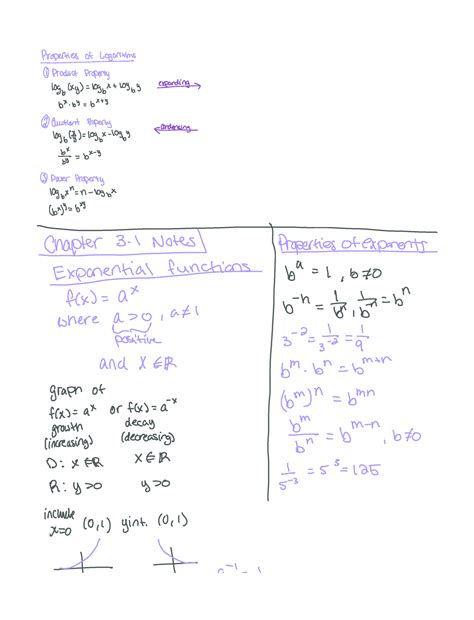 Properties of Logarithms
① Product Property
log_b (xy) = log_b x + log_b y
expanding
b^x · b^y = b^(x+y)
② Quotient Property
log_b (x/y) = log_b x - log_b y
condensing
b^x / b^y = b^(x-y)
③ Power Property
log_b x^n = n - log_b x
(b^x)^y = b^(xy)
Chapter 3.1 Notes
Exponential functions
f(x) = a^x
where a>0, a≠1
positive
and x ∈ ℝ
graph of
f(x) = a^x or f(x) = a^-x
growth decay
(increasing) (decreasing)
D: x ∈ ℝ x ∈ ℝ
R: y>0 y>0
include
x=0 (0,1) yint. (0,1)
Properties of exponents
b^a = 1, b≠0
b^-n = 1/b^n, 1/b^-n = b^n
3^-2 = 1/3^-2 = 1/9
b^m · b^n = b^(m+n)
(b^m)^n = b^(mn)
b^m / b^n = b^(m-n), b≠0
1/5^-3 = 5^3 = 125